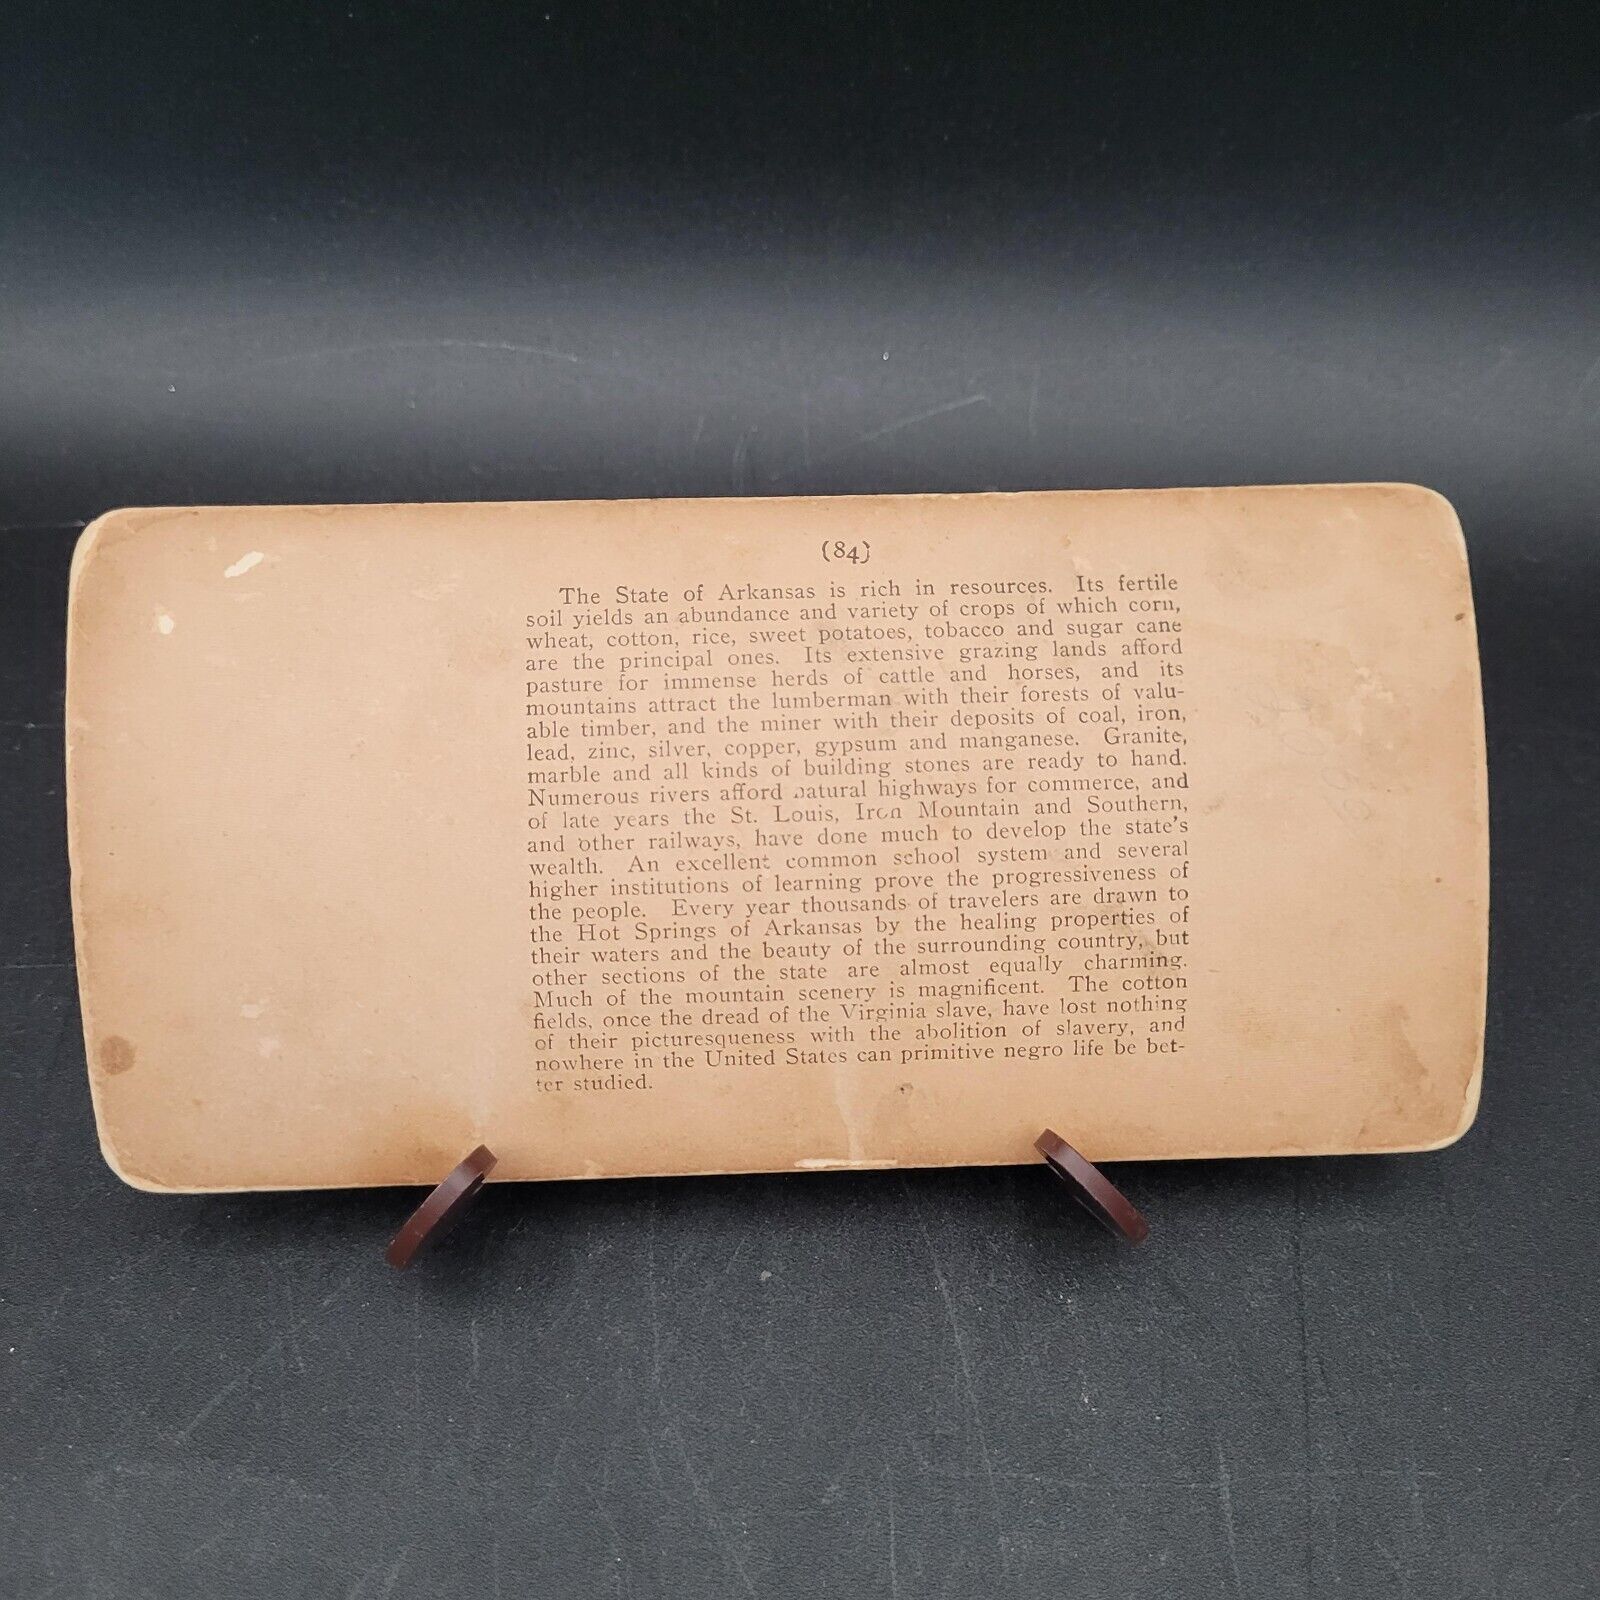 (84)
The State of Arkansas is rich in resources. Its fertile
soil yields an abundance and variety of crops of which corn,
wheat, cotton, rice, sweet potatoes, tobacco and sugar cane
are the principal ones. Its extensive grazing lands afford
pasture for immense herds of cattle and horses, and its
mountains attract the lumberman with their forests of valu-
able timber, and the miner with their deposits of coal, iron,
lead, zinc, silver, copper, gypsum and manganese. Granite,
marble and all kinds of building stones are ready to hand.
Numerous rivers afford natural highways for commerce, and
of late years the St. Louis, Iron Mountain and Southern,
and other railways, have done much to develop the state's
wealth. An excellent common school system and several
higher institutions of learning prove the progressiveness of
the people. Every year thousands of travelers are drawn to
the Hot Springs of Arkansas by the healing properties of
their waters and the beauty of the surrounding country, but
other sections of the state are almost equally charming.
Much of the mountain scenery is magnificent. The cotton
fields, once the dread of the Virginia slave, have lost nothing
of their picturesqueness with the abolition of slavery, and
nowhere in the United States can primitive negro life be bet-
ter studied.